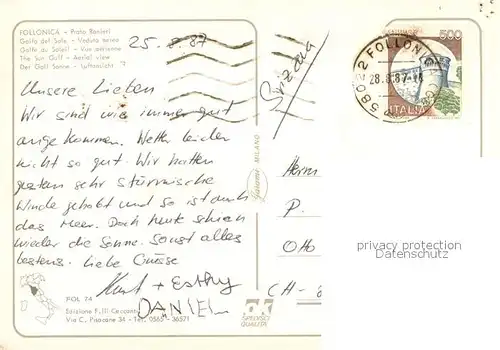 FOLLONICA - Prato Ranieri
Golfo del Sole - Veduta aerea
Golfe du Soleil - Vue aérienne
The Sun Gulf - Aerial view
Der Golf Sonne - Luftansicht
25.8.87
Unsere Lieben
Wir sind wie immer gut
angekommen. Wetter leider
nicht so gut. Wir hatten
gestern sehr stürmische
Winde gehabt und so ist auch
das Meer. Doch heute schien
wieder die Sonne. Sonst alles
bestens. Liebe Grüsse
Kurt + Esthy
DANIEL
FOL 74
Edizione F.lli Ceccanti
Via C. Pisacane 34 - Tel. 0565 - 36571
Svizzera
MILANO
SPECIO
QUALITÀ
500
ITALIA
58022 FOLLONICA
28.8.87
Herrn
P.
Otto
CH-
privacy protection
Datenschutz